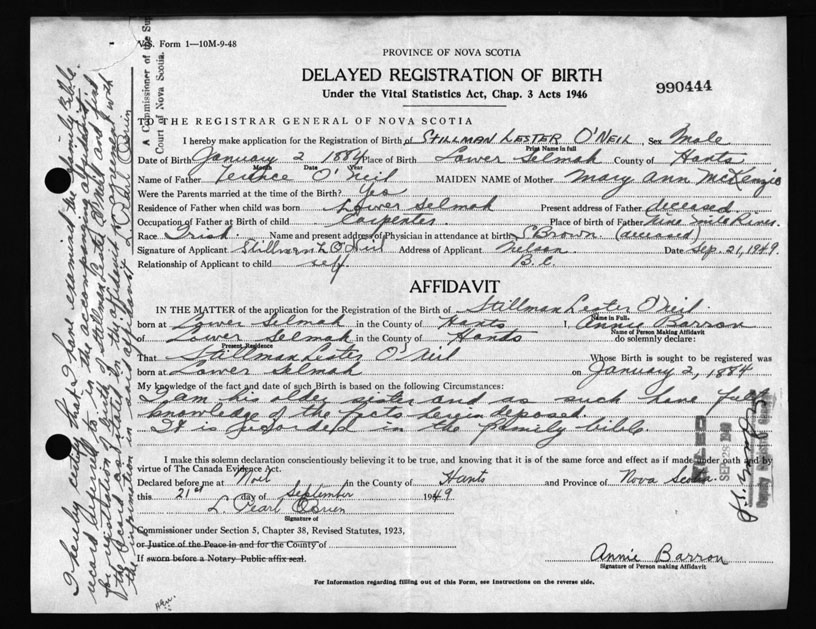 V.S. Form 1—10M-9-48
PROVINCE OF NOVA SCOTIA
DELAYED REGISTRATION OF BIRTH
990444
Under the Vital Statistics Act, Chap. 3 Acts 1946
TO THE REGISTRAR GENERAL OF NOVA SCOTIA
I hereby make application for the Registration of Birth of STILLMAN LESTER O'NEIL, Sex Male
Print Name in full
Date of Birth January 2 1884 Place of Birth Lower Selmah County of Hants
Month Date Year
Name of Father Terence O'Neil MAIDEN NAME of Mother Mary Ann McKenzie
Were the Parents married at the time of the Birth? Yes
Residence of Father when child was born Lower Selmah Present address of Father deceased.
Occupation of Father at Birth of child Carpenter Place of birth of Father Nine mile River.
Race Irish. Name and present address of Physician in attendance at birth S Brown (deceased)
Signature of Applicant Stillman L O'Neil Address of Applicant Nelson Date Sep. 21, 1949.
Relationship of Applicant to child self B.C.
AFFIDAVIT
IN THE MATTER of the application for the Registration of the Birth of Stillman Lester O'Neil.
Name in Full.
born at Lower Selmah in the County of Hants I, Annie Barron
Name of Person Making Affidavit
of Lower Selmah in the County of Hants do solemnly declare:
Present Residence
That Stillman Lester O'Neil Whose Birth is sought to be registered was
born at Lower Selmah on January 2, 1884
My knowledge of the fact and date of such Birth is based on the following Circumstances:
I am his older sister and as such have full
knowledge of the facts herein deposed.
It is recorded in the family bible.
I make this solemn declaration conscientiously believing it to be true, and knowing that it is of the same force and effect as if made under oath and by
virtue of The Canada Evidence Act.
Declared before me at Noel in the County of Hants and Province of Nova Scotia
this 21st day of September 1949
L. Pearl O'Brien
Signature of
Commissioner under Section 5, Chapter 38, Revised Statutes, 1923,
or Justice of the Peace in and for the County of
If sworn before a Notary Public affix seal.
Annie Barron
Signature of Person making Affidavit
For Information regarding filling out of this Form, see Instructions on the reverse side.
I hereby certify that I have examined the family Bible
record referred to in the accompanying application
for registration of birth of Stillman Lester O'Neil and find
the record as stated by the affidavit in agreement with
the information in affidavit. L. Pearl O'Brien
A Commissioner of the Su
Court of Nova Scotia.
FILED
SEP 28 1949